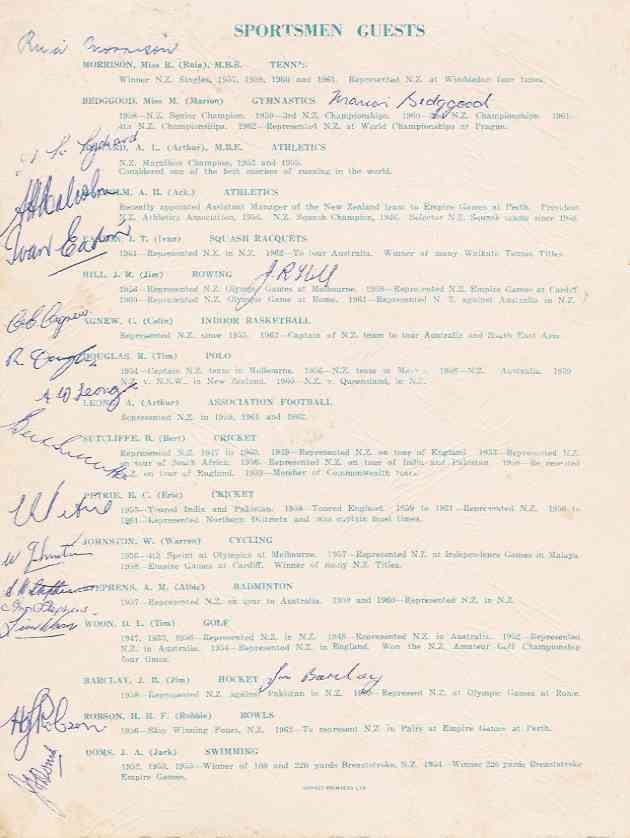 SPORTSMEN GUESTS
Ruia Morrison
MORRISON, Miss R. (Ruia), M.B.E. TENNIS
Winner N.Z. Singles, 1957, 1959, 1960 and 1961. Represented N.Z. at Wimbledon four times.
BEDGGOOD, Miss M. (Marion) GYMNASTICS Marion Bedggood
1958—N.Z. Senior Champion. 1959—3rd N.Z. Championships. 1960—2nd N.Z. Championships. 1961—
4th N.Z. Championships. 1962—Represented N.Z. at World Championships at Prague.
A. L. (Arthur), M.B.E. ATHLETICS
N.Z. Marathon Champion, 1953 and 1955.
Considered one of the best coaches of running in the world.
A. H. (Ack.) ATHLETICS
Recently appointed Assistant Manager of the New Zealand team to Empire Games at Perth. President
N.Z. Athletics Association, N.Z. Squash Champion, Selector N.Z. Squash teams since
Ivan Eason
J. T. (Ivan) SQUASH RACQUETS
1961—Represented N.Z. in N.Z. 1962—To tour Australia. Winner of many Waikato Tennis Titles
HILL, J. R. (Jim) ROWING J.R. Hill
1956—Represented N.Z. Olympic Games at Melbourne. 1958—Represented N.Z. Empire Games at Cardiff
1960—Represented N.Z. Olympic Game at Rome. 1961—Represented N.Z. against Australia in N.Z.
AGNEW, C. (Colin) INDOOR BASKETBALL
Represented N.Z. since 1955. 1962—Captain of N.Z. team to tour Australia and South East Asia
DOUGLAS, R. (Tim) POLO
1954—Captain N.Z. team in Melbourne. 1956—N.Z. team in N.Z. Australia. 1959
N.Z. v. N.S.W., in New Zealand. 1960—N.Z. v. Queensland, in N.Z.
A W Leong
LEONG, A. (Arthur) ASSOCIATION FOOTBALL
Represented N.Z. in 1959, 1961 and 1962.
Bert Sutcliffe
SUTCLIFFE, B. (Bert) CRICKET
Represented N.Z. 1947 to 1960. 1949—Represented N.Z. on tour of England. 1953—Represented N.Z.
on tour of South Africa. 1956—Represented N.Z. on tour of India and Pakistan. 1958—Represented
N.Z. on tour of England. 1959—Member of Commonwealth
PETRIE, E. C. (Eric) CRICKET
1955—Toured India and Pakistan. 1958—Toured England. 1959 to 1961—Represented N.Z. 1950 to
1961—Represented Northern Districts and was captain most times.
W Johnston
JOHNSTON, W. (Warren) CYCLING
1956—4th Sprint at Olympics at Melbourne. 1957—Represented N.Z. at Independence Games in Malaya.
1958—Empire Games at Cardiff. Winner of many N.Z. Titles.
STEPHENS, A. M. (Albie) BADMINTON
1957—Represented N.Z. on tour in Australia. 1958 and 1960—Represented N.Z. in N.Z.
Tim Woon
WOON, D. L. (Tim) GOLF
1947, 1953, 1956—Represented N.Z. in N.Z. 1948—Represented N.Z. in Australia. 1952—Represented
N.Z. in Australia. 1954—Represented N.Z. in England. Won the N.Z. Amateur Golf Championship
four times.
BARCLAY, J. B. (Jim) HOCKEY Jim Barclay
1958—Represented N.Z. against Pakistan in N.Z. 1960—Represent N.Z. at Olympic Games at Rome.
H J Robson
ROBSON, H. H. F. (Robbie) BOWLS
1956—Skip Winning Fours, N.Z. 1962—To represent N.Z. in Pairs at Empire Games at Perth.
DOMS, J. A. (Jack) SWIMMING
1952, 1953, 1955—Winner of 100 and 220 yards Breaststroke, N.Z. 1954—Winner 220 yards Breaststroke
Empire Games.